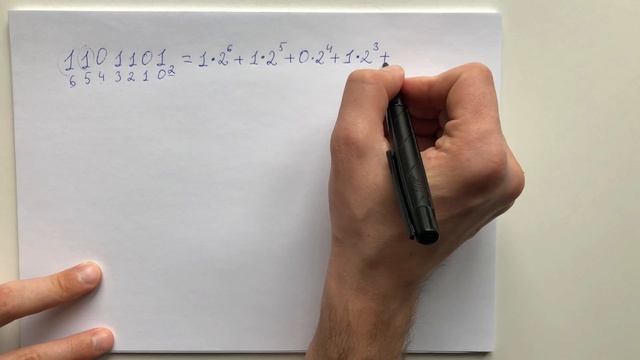 1101101₂ = 1·2⁶ + 1·2⁵ + 0·2⁴ + 1·2³ +
6 5 4 3 2 1 0